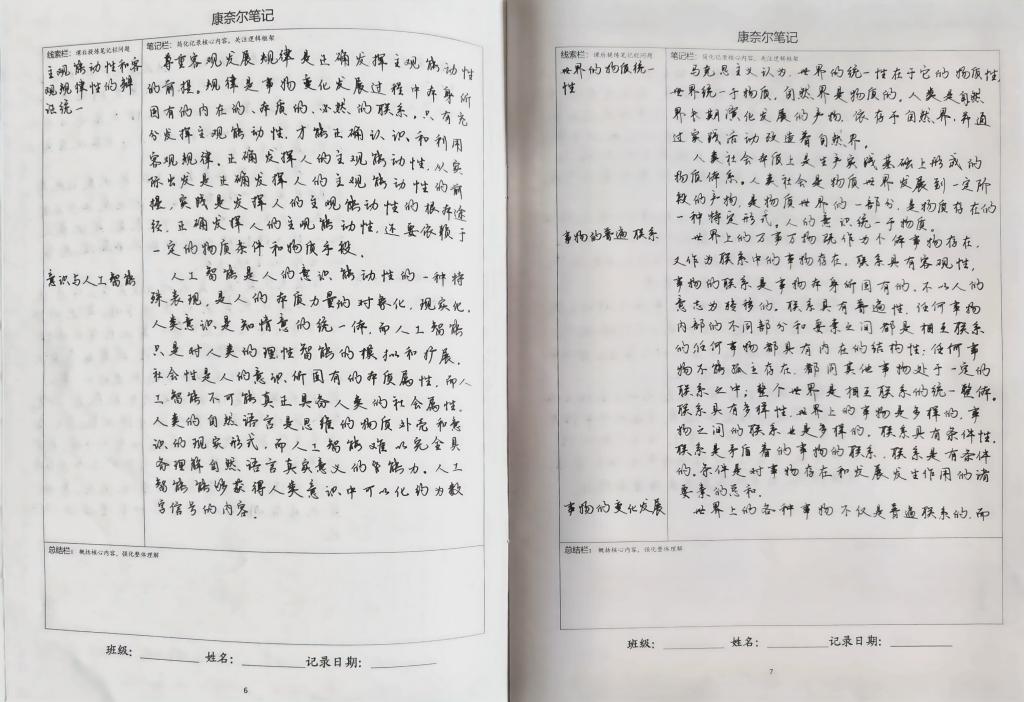 康奈尔笔记
线索栏：课后提炼笔记栏问题
笔记栏：简化记录核心内容，关注逻辑框架
主观能动性和客
观规律性的辩
证统一
尊重客观发展规律是正确发挥主观能动性
的前提。规律是事物变化发展过程中本身所
固有的内在的、本质的、必然的联系。只有充
分发挥主观能动性，才能正确认识和利用
客观规律。正确发挥人的主观能动性，从实
际出发是正确发挥人的主观能动性的前
提，实践是发挥人的主观能动性的根本途
径，正确发挥人的主观能动性，还要依赖于
一定的物质条件和物质手段。
意识与人工智能
人工智能是人的意识能动性的一种特
殊表现，是人的本质力量的对象化、现实化。
人类意识是知情意的统一体，而人工智能
只是对人类的理性智能的模拟和扩展，
社会性是人的意识所固有的本质属性，而人
工智能不可能真正具备人类的社会属性，
人类的自然语言是思维的物质外壳和意
识的现实形式，而人工智能难以完全具
备理解自然语言真实意义的能力。人工
智能能够获得人类意识中可以化约为数
字信号的内容。
总结栏：概括核心内容，强化整体理解
班级：
姓名：
记录日期：
6
康奈尔笔记
线索栏：课后提炼笔记栏问题
笔记栏：简化记录核心内容，关注逻辑框架
世界的物质统一
性
马克思主义认为，世界的统一性在于它的物质性，
世界统一于物质，自然界是物质的。人类是自然
界长期演化发展的产物，依存于自然界，并通
过实践活动改造着自然界。
人类社会本质上是生产实践基础上形成的
物质体系。人类社会是物质世界发展到一定阶
段的产物，是物质世界的一部分，是物质存在的
一种特定形式。人的意识统一于物质。
事物的普遍联系
世界上的万事万物既作为个体事物存在，
又作为联系中的事物存在。联系具有客观性，
事物的联系是事物本身所固有的，不以人的
意志为转移的。联系具有普遍性，任何事物
内部的不同部分和要素之间都是相互联系
的任何事物都具有内在的结构性；任何事
物不能孤立存在，都同其他事物处于一定的
联系之中；整个世界是相互联系的统一整体。
联系具有多样性，世界上的事物是多样的，事
物之间的联系也是多样的。联系具有条件性，
联系是矛盾着的事物的联系，联系是有条件
的。条件是对事物存在和发展发生作用的诸
要素的总和。
事物的变化发展
世界上的各种事物不仅是普遍联系的，而
总结栏：概括核心内容，强化整体理解
班级：
姓名：
记录日期：
7